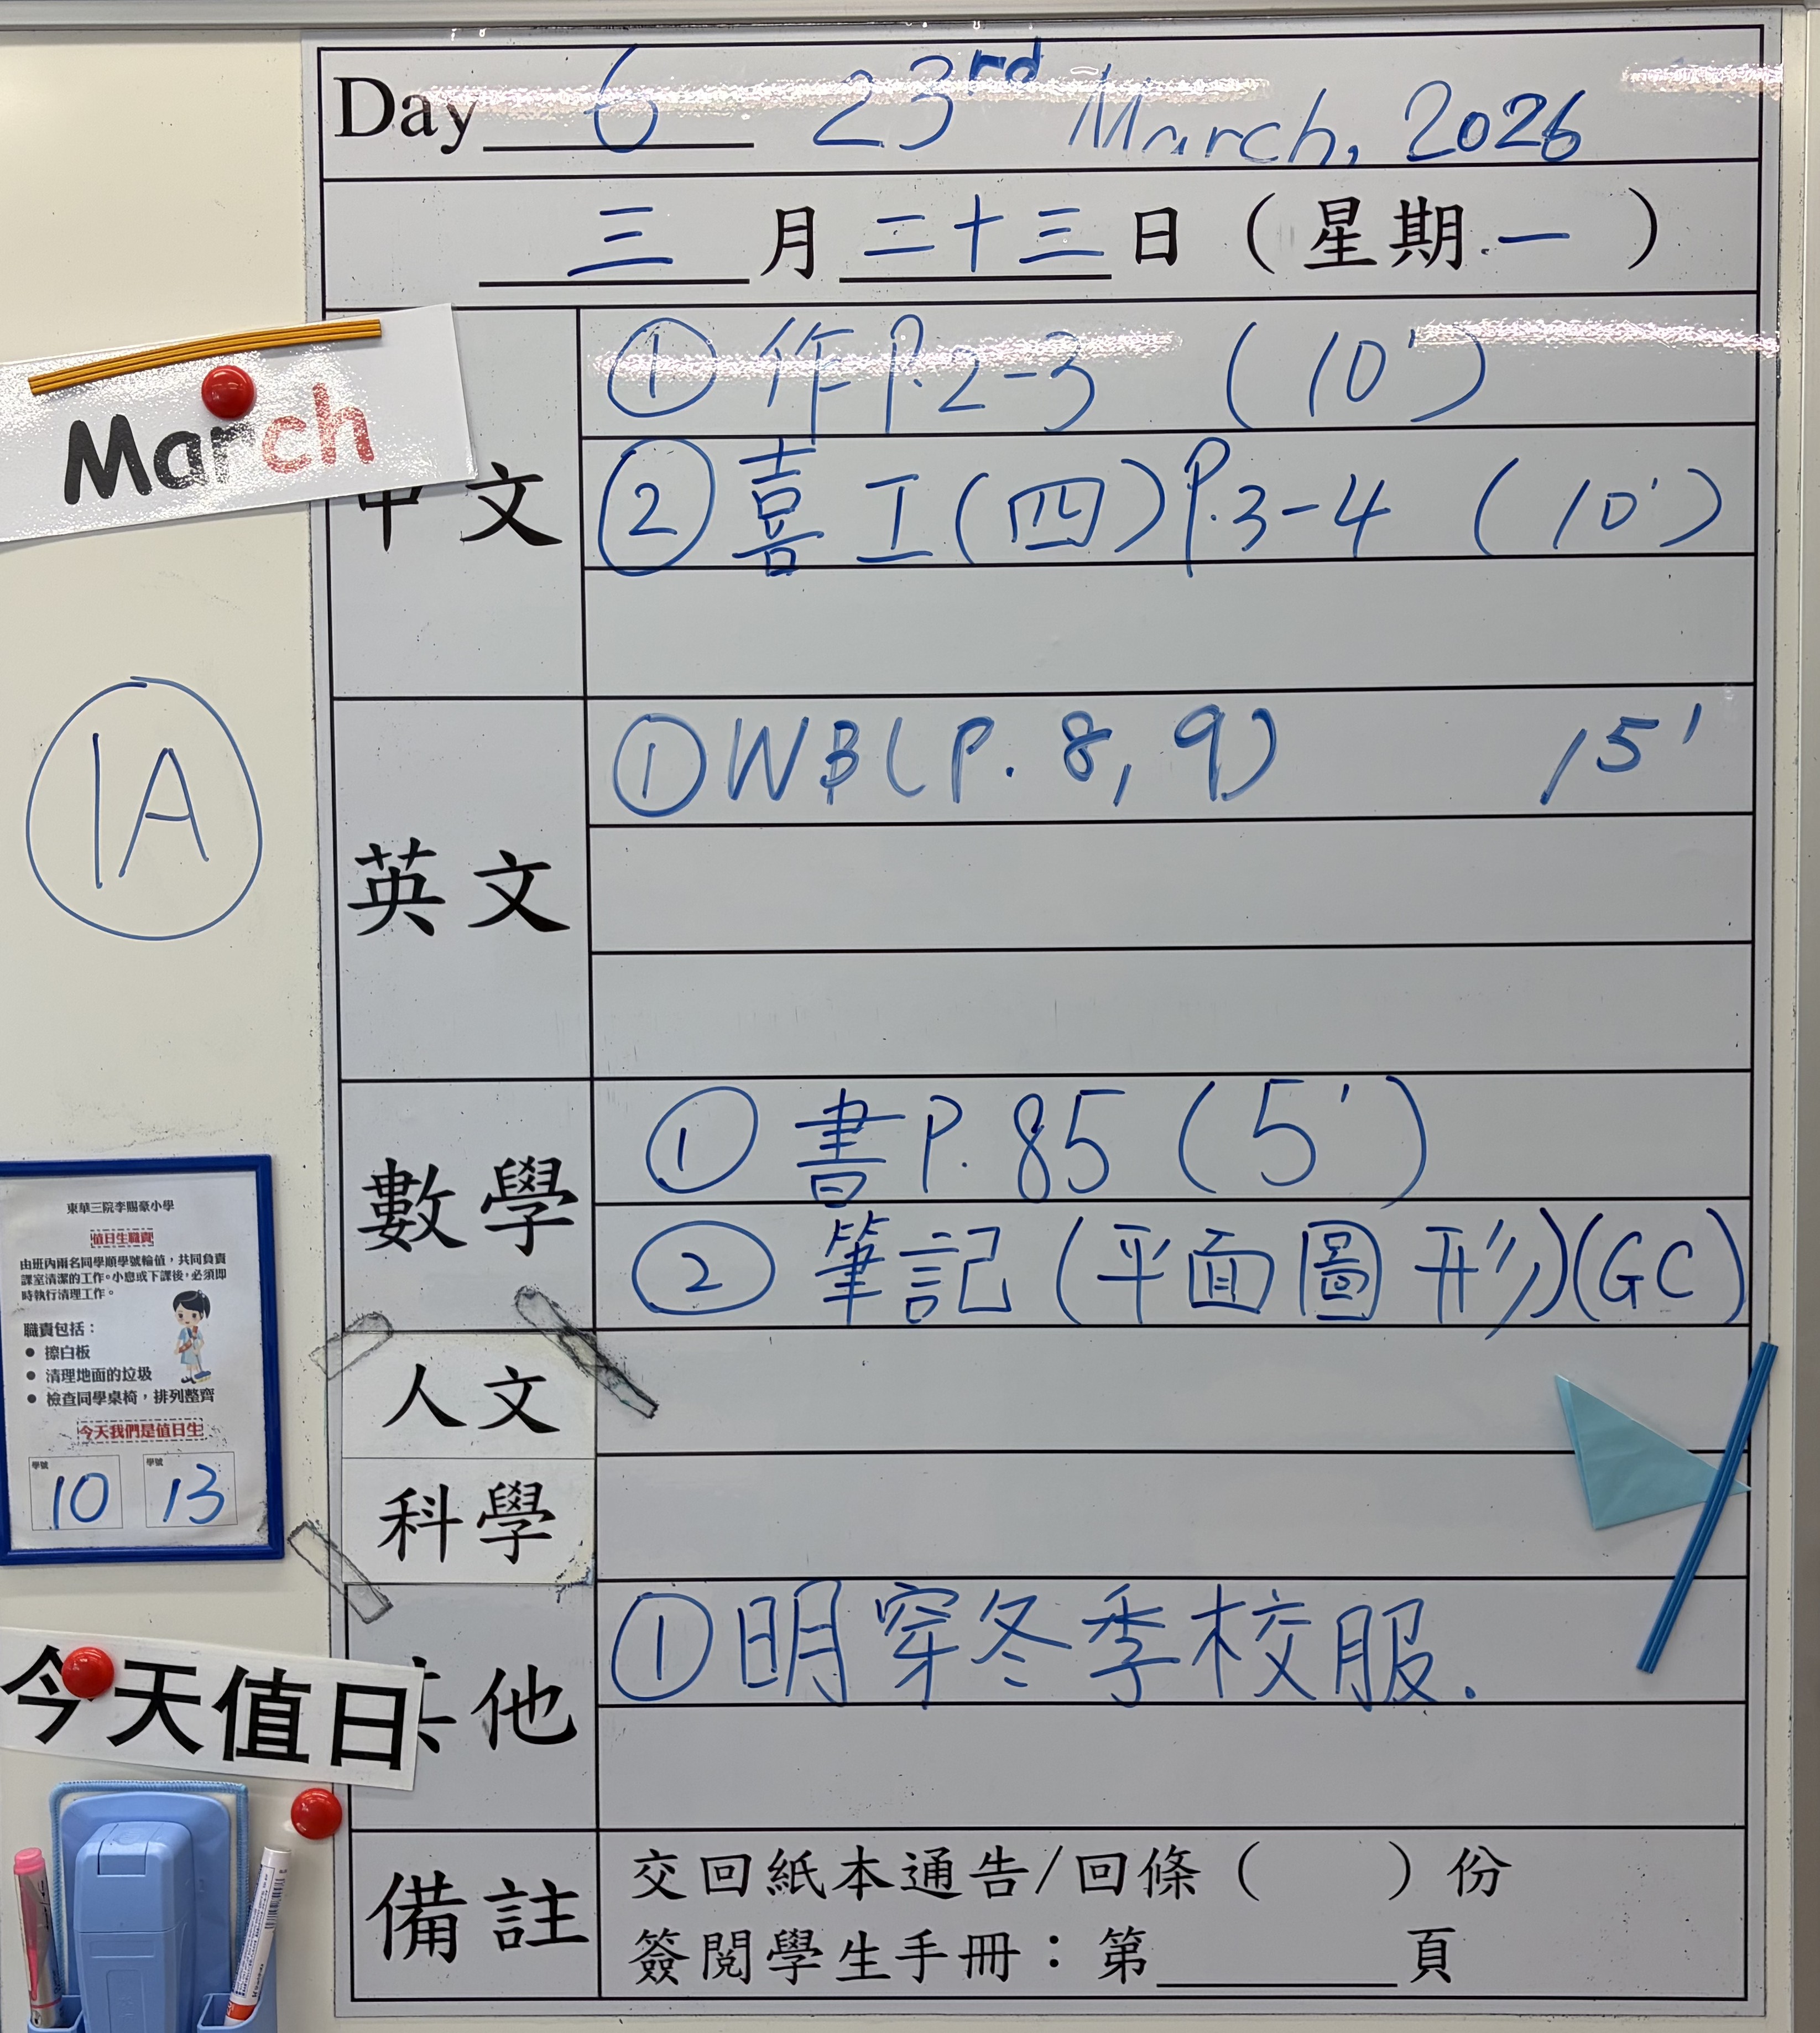 Day 6 23rd March, 2026
三 月 二十三 日 ( 星期 一 )
March
中文
① 作 P.2-3 ( 10' )
② 喜 工 (四) P.3-4 ( 10' )
1A
英文
① WB (P. 8, 9) 15'
數學
① 書 P. 85 ( 5' )
② 筆記 (平面圖形) (GC)
人文
科學
其他
① 明穿冬季校服.
備註
交回紙本通告/回條 ( ) 份
簽閱學生手冊：第________頁
東華三院李賜豪小學
值日生職責
由班內兩名同學順學號輪值，共同負責
課室清潔的工作。小息或下課後，必須即
時執行清理工作。
職責包括：
● 擦白板
● 清理地面的垃圾
● 檢查同學桌椅，排列整齊
今天我們是值日生
學號 學號
10 13
今天值日